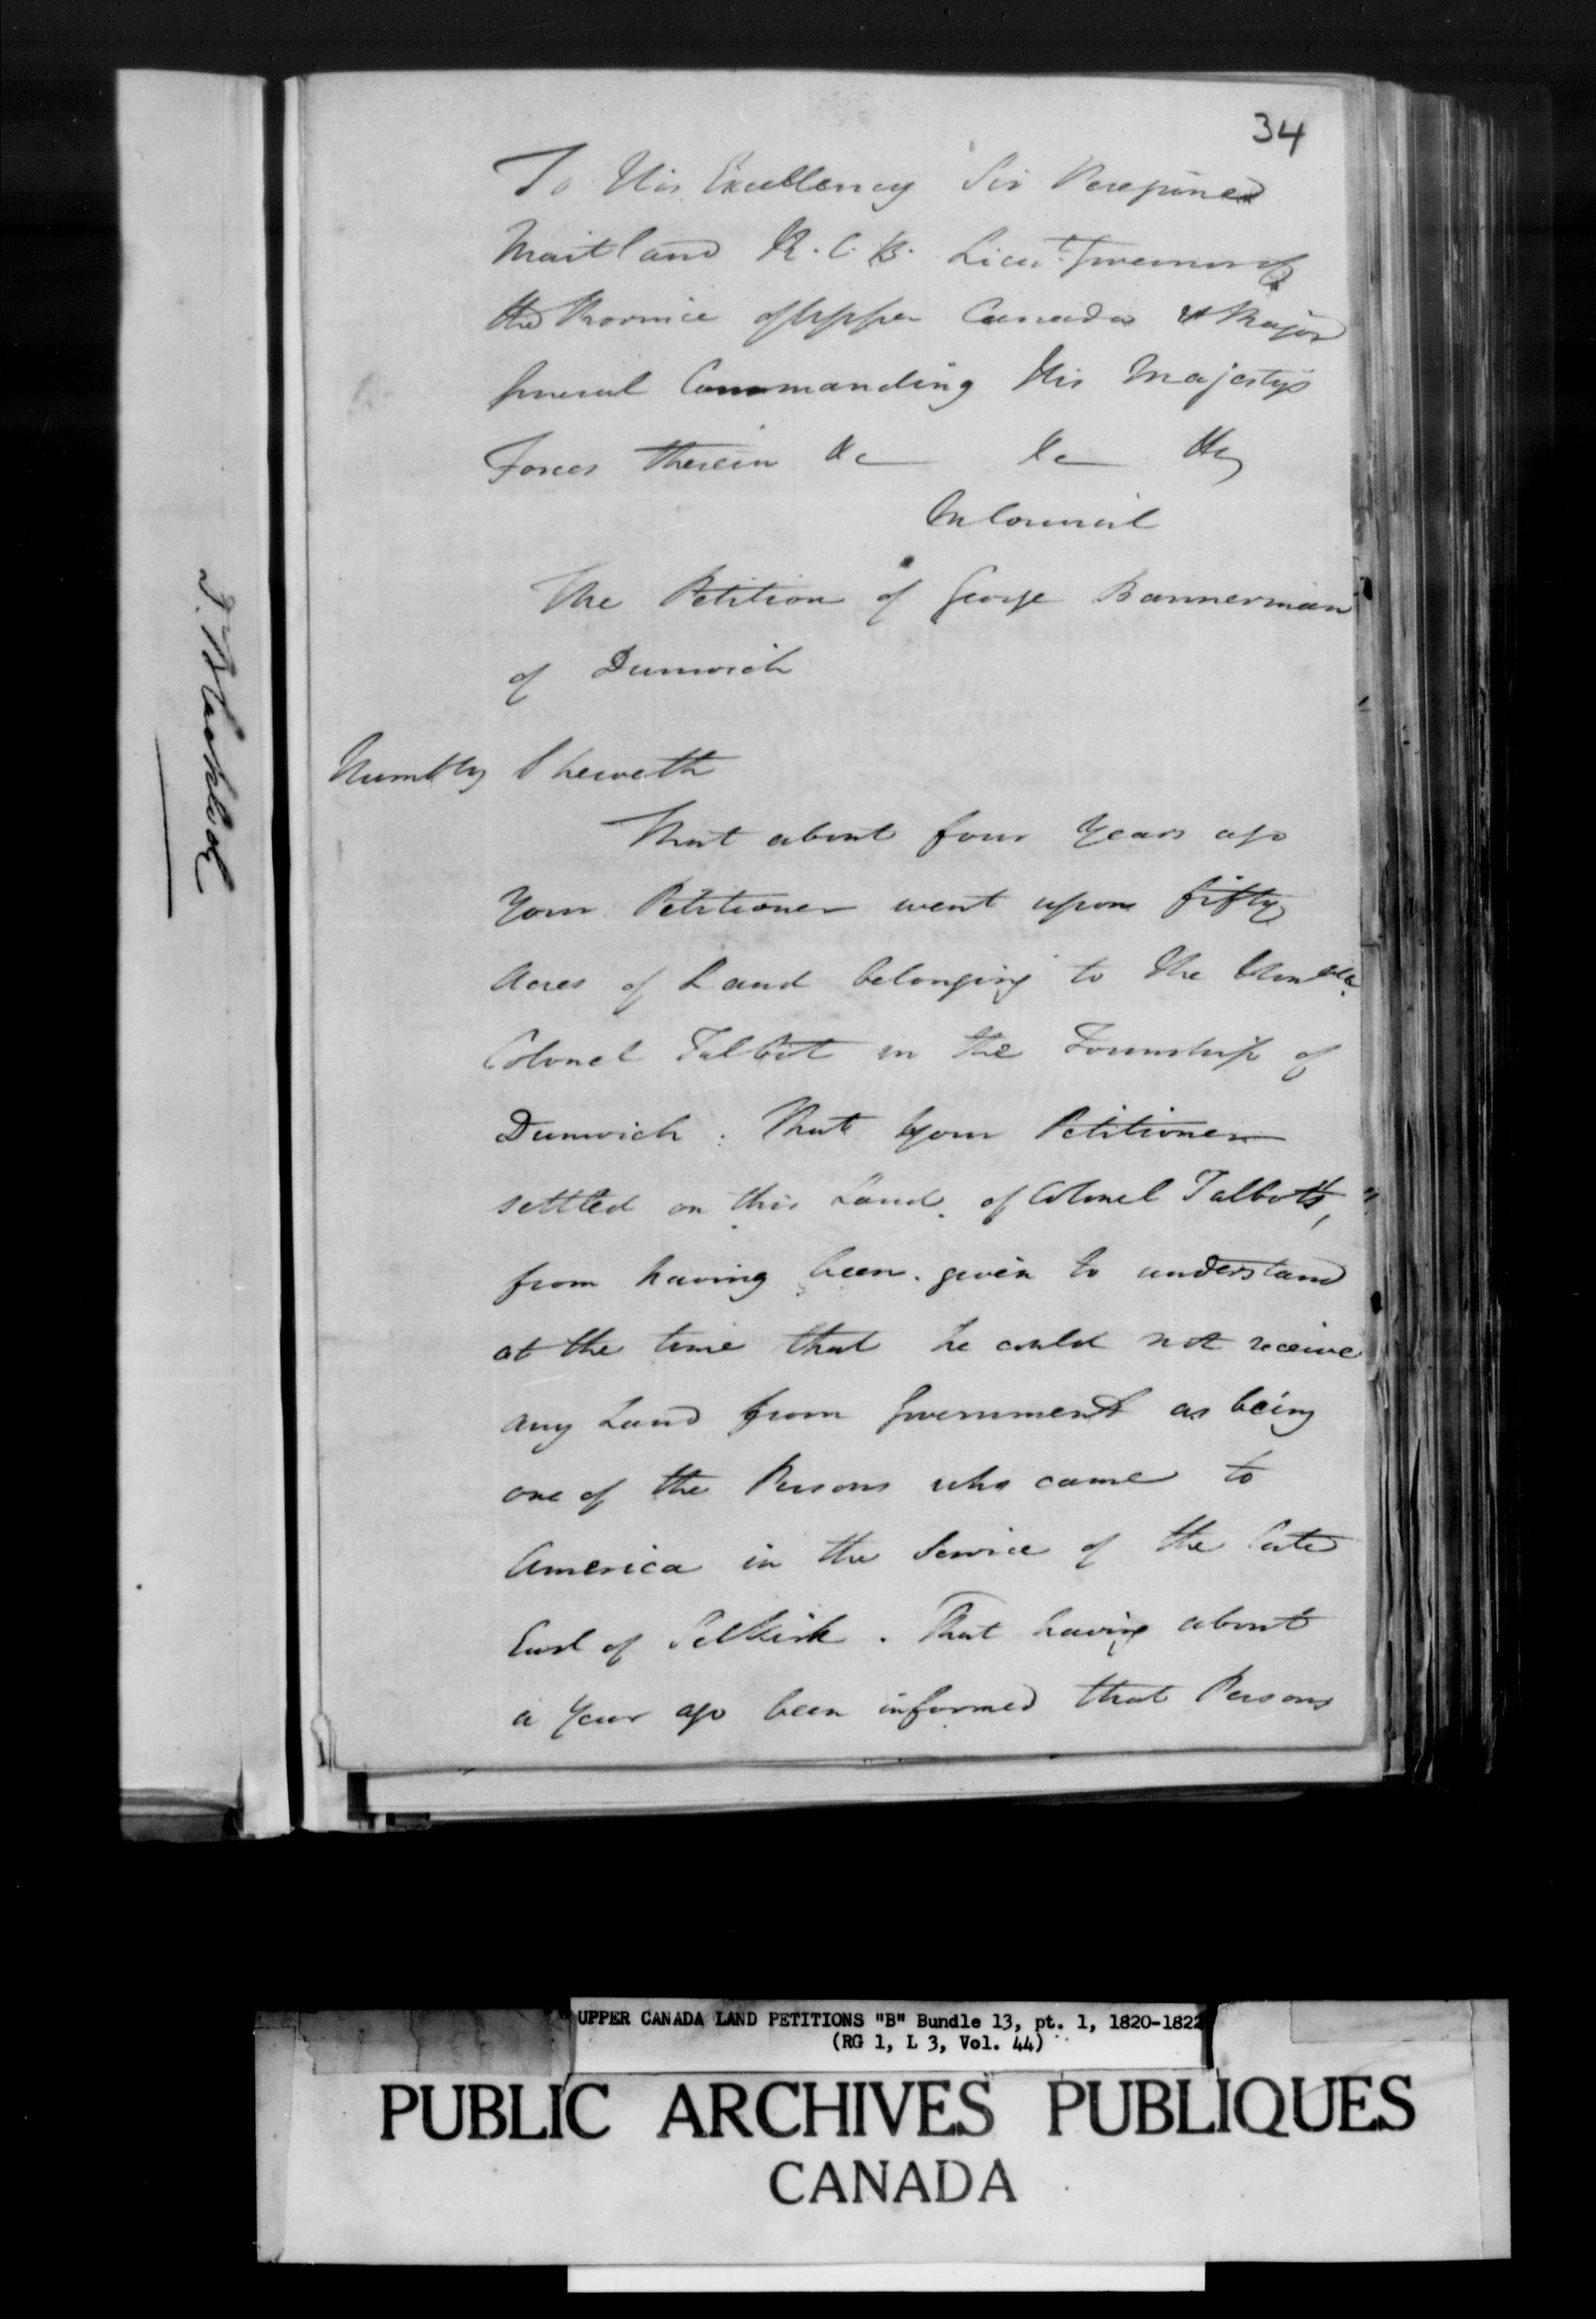 34
To His Excellency Sir Peregrine
Maitland K.C.B. Lieut. Governor of
the Province of Upper Canada & Major
General Commanding His Majestys
Forces therein &c &c &c
In Council
The Petition of George Bannerman
of Dunwich
Humbly Sheweth
That about four Years ago
Your Petitioner went upon fifty
Acres of Land belonging to the Honble
Colonel Talbot in the Township of
Dunwich. That your Petitioner
settled on this Land of Colonel Talbots,
from having been given to understand
at the time that he could not receive
any Land from Government as being
one of the Persons who came to
America in the Service of the late
Earl of Selkirk. That having about
a Year ago been informed that Persons
UPPER CANADA LAND PETITIONS "B" Bundle 13, pt. 1, 1820-1822
(RG 1, L 3, Vol. 44)
PUBLIC ARCHIVES PUBLIQUES
CANADA